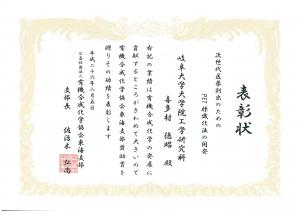 表彰状
次世代医薬創出のための
PET標識化法の開発
岐阜大学大学院工学研究科
喜多村 徳昭 殿
右記の業績は有機合成化学の発展に
貢献するところがきわめて大きいので
有機合成化学協会東海支部奨励賞を
贈りその功績を表彰します
平成二十六年八月五日
公益社団法人有機合成化学協会東海支部
支部長 佐治木 弘尚